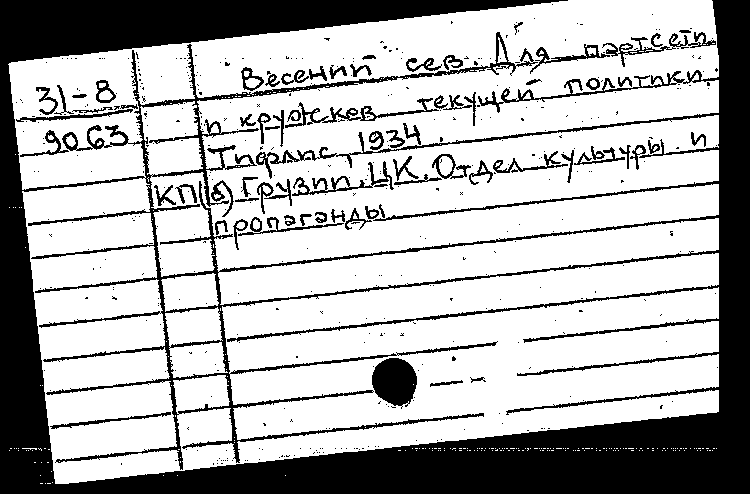 31-8
9063
Весений сев. Для партсети
и кружков текущей политики.
Тифлис, 1934.
КП(б) Грузии. ЦК. Отдел культуры и
пропаганды.